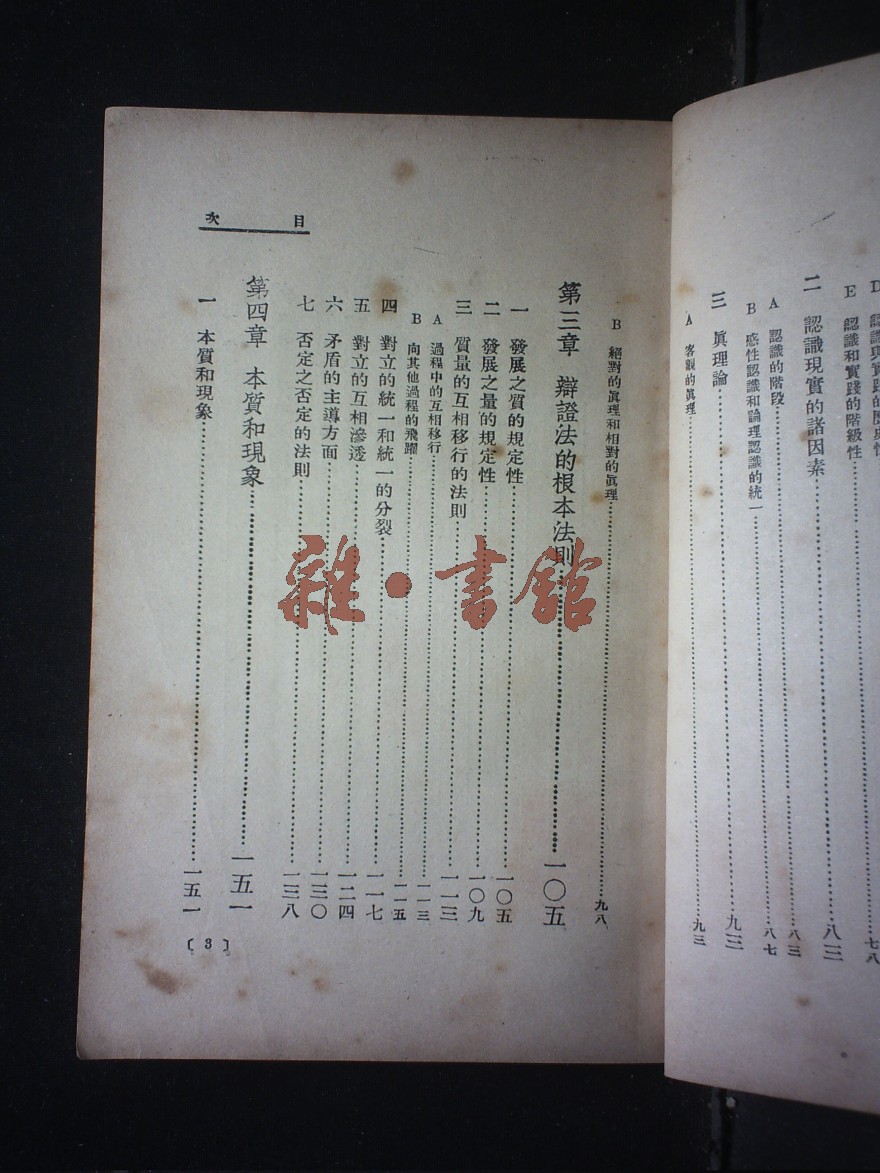 E 認識和實踐的階級性
二 認識現實的諸因素……八三
A 認識的階段……八三
B 感性認識和論理認識的統一……八七
三 眞理論……九三
A 客觀的眞理……九三
目次
B 絕對的眞理和相對的眞理……九八
第三章 辯證法的根本法則……一〇五
一 發展之質的規定性……一〇五
二 發展之量的規定性……一〇九
三 質量的互相移行的法則……一一三
A 過程中的互相移行……一一三
B 向其他過程的飛躍……一一五
四 對立的統一和統一的分裂……一一七
五 對立的互相滲透……一二四
六 矛盾的主導方面……一三〇
七 否定之否定的法則……一三八
第四章 本質和現象……一五一
一 本質和現象……一五一
〔3〕
雜·書館